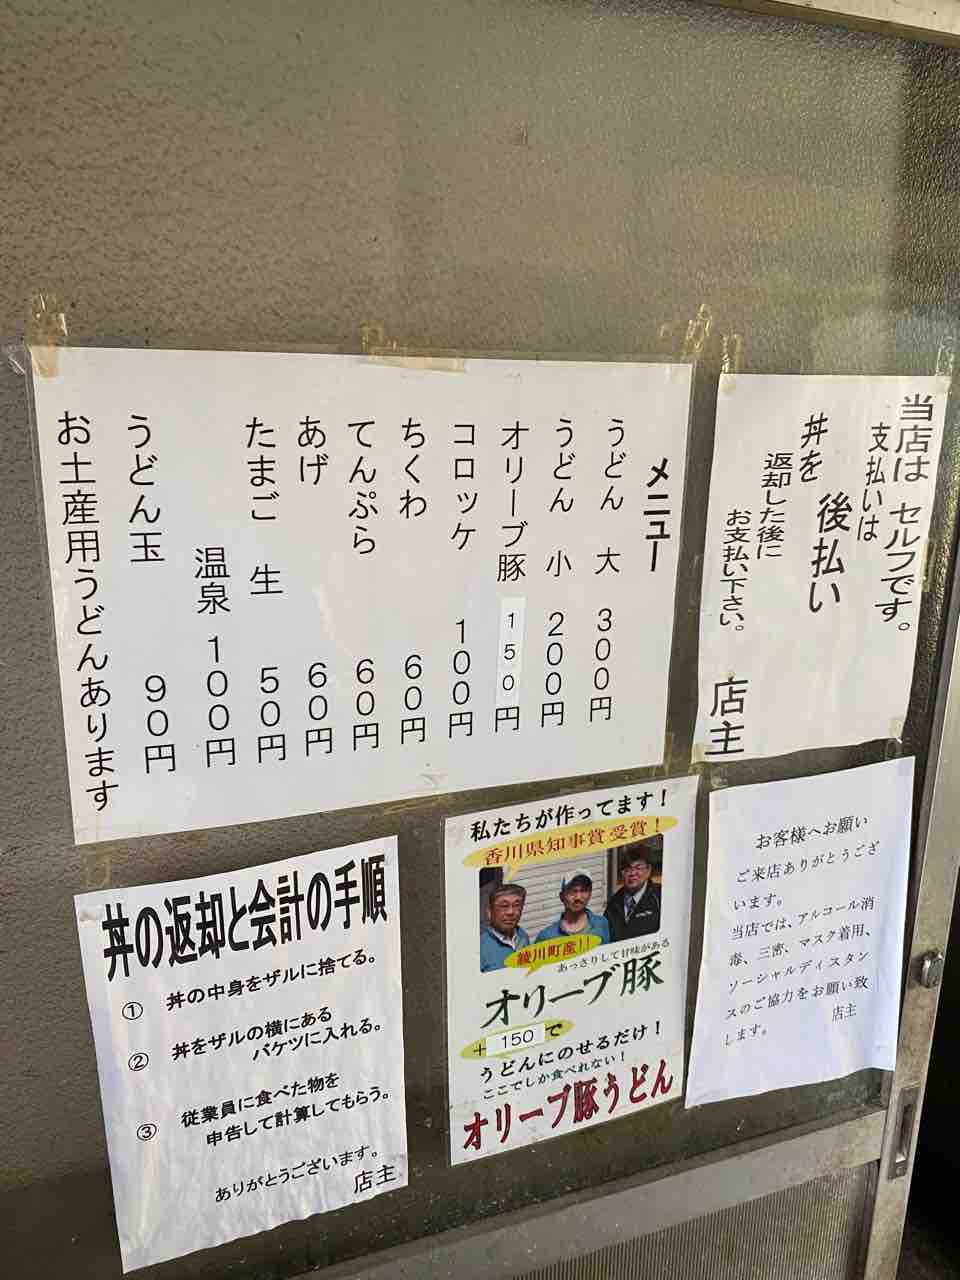 メニュー
うどん 大 300円
うどん 小 200円
オリーブ豚 150円
コロッケ 100円
ちくわ 60円
てんぷら 60円
あげ 60円
たまご 生 50円
温泉 100円
うどん玉 90円
お土産用うどんあります
当店は セルフです。
支払いは
後払い
丼を
返却した後に
お支払い下さい。
店主
丼の返却と会計の手順
① 丼の中身をザルに捨てる。
② 丼をザルの横にある
バケツに入れる。
③ 従業員に食べた物を
申告して計算してもらう。
ありがとうございます。
店主
私たちが作ってます!
香川県知事賞受賞!
綾川町産!!
あっさりして甘味がある
オリーブ豚
+150で
うどんにのせるだけ!
ここでしか食べれない!
オリーブ豚うどん
お客様へお願い
ご来店ありがとうござ
います。
当店では、アルコール消
毒、三密、マスク着用、
ソーシャルディスタン
スのご協力をお願い致
します。
店主